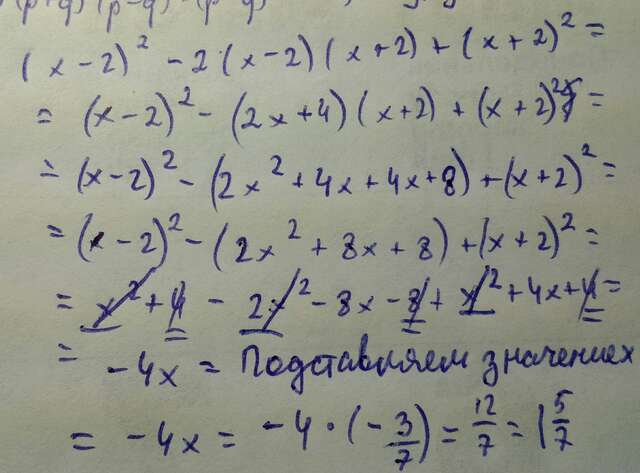 (p+q)(p-q)-(p-q)
(x-2)² - 2(x-2)(x+2) + (x+2)² =
= (x-2)² - (2x+4)(x+2) + (x+2)² =
= (x-2)² - (2x²+4x+4x+8) + (x+2)² =
= (x-2)² - (2x² + 8x + 8) + (x+2)² =
= x² + 4 - 2x² - 8x - 8 + x² + 4x + 4 =
= -4x = Подставляем значение x
= -4x = -4 · (-3/7) = 12/7 = 1 5/7